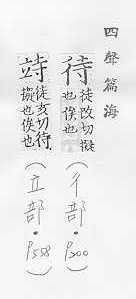 四聲篇海
待 徒改切擬也俟也 (彳部·P200)
竢 徒亥切待擬也俟也 (立部·P558)